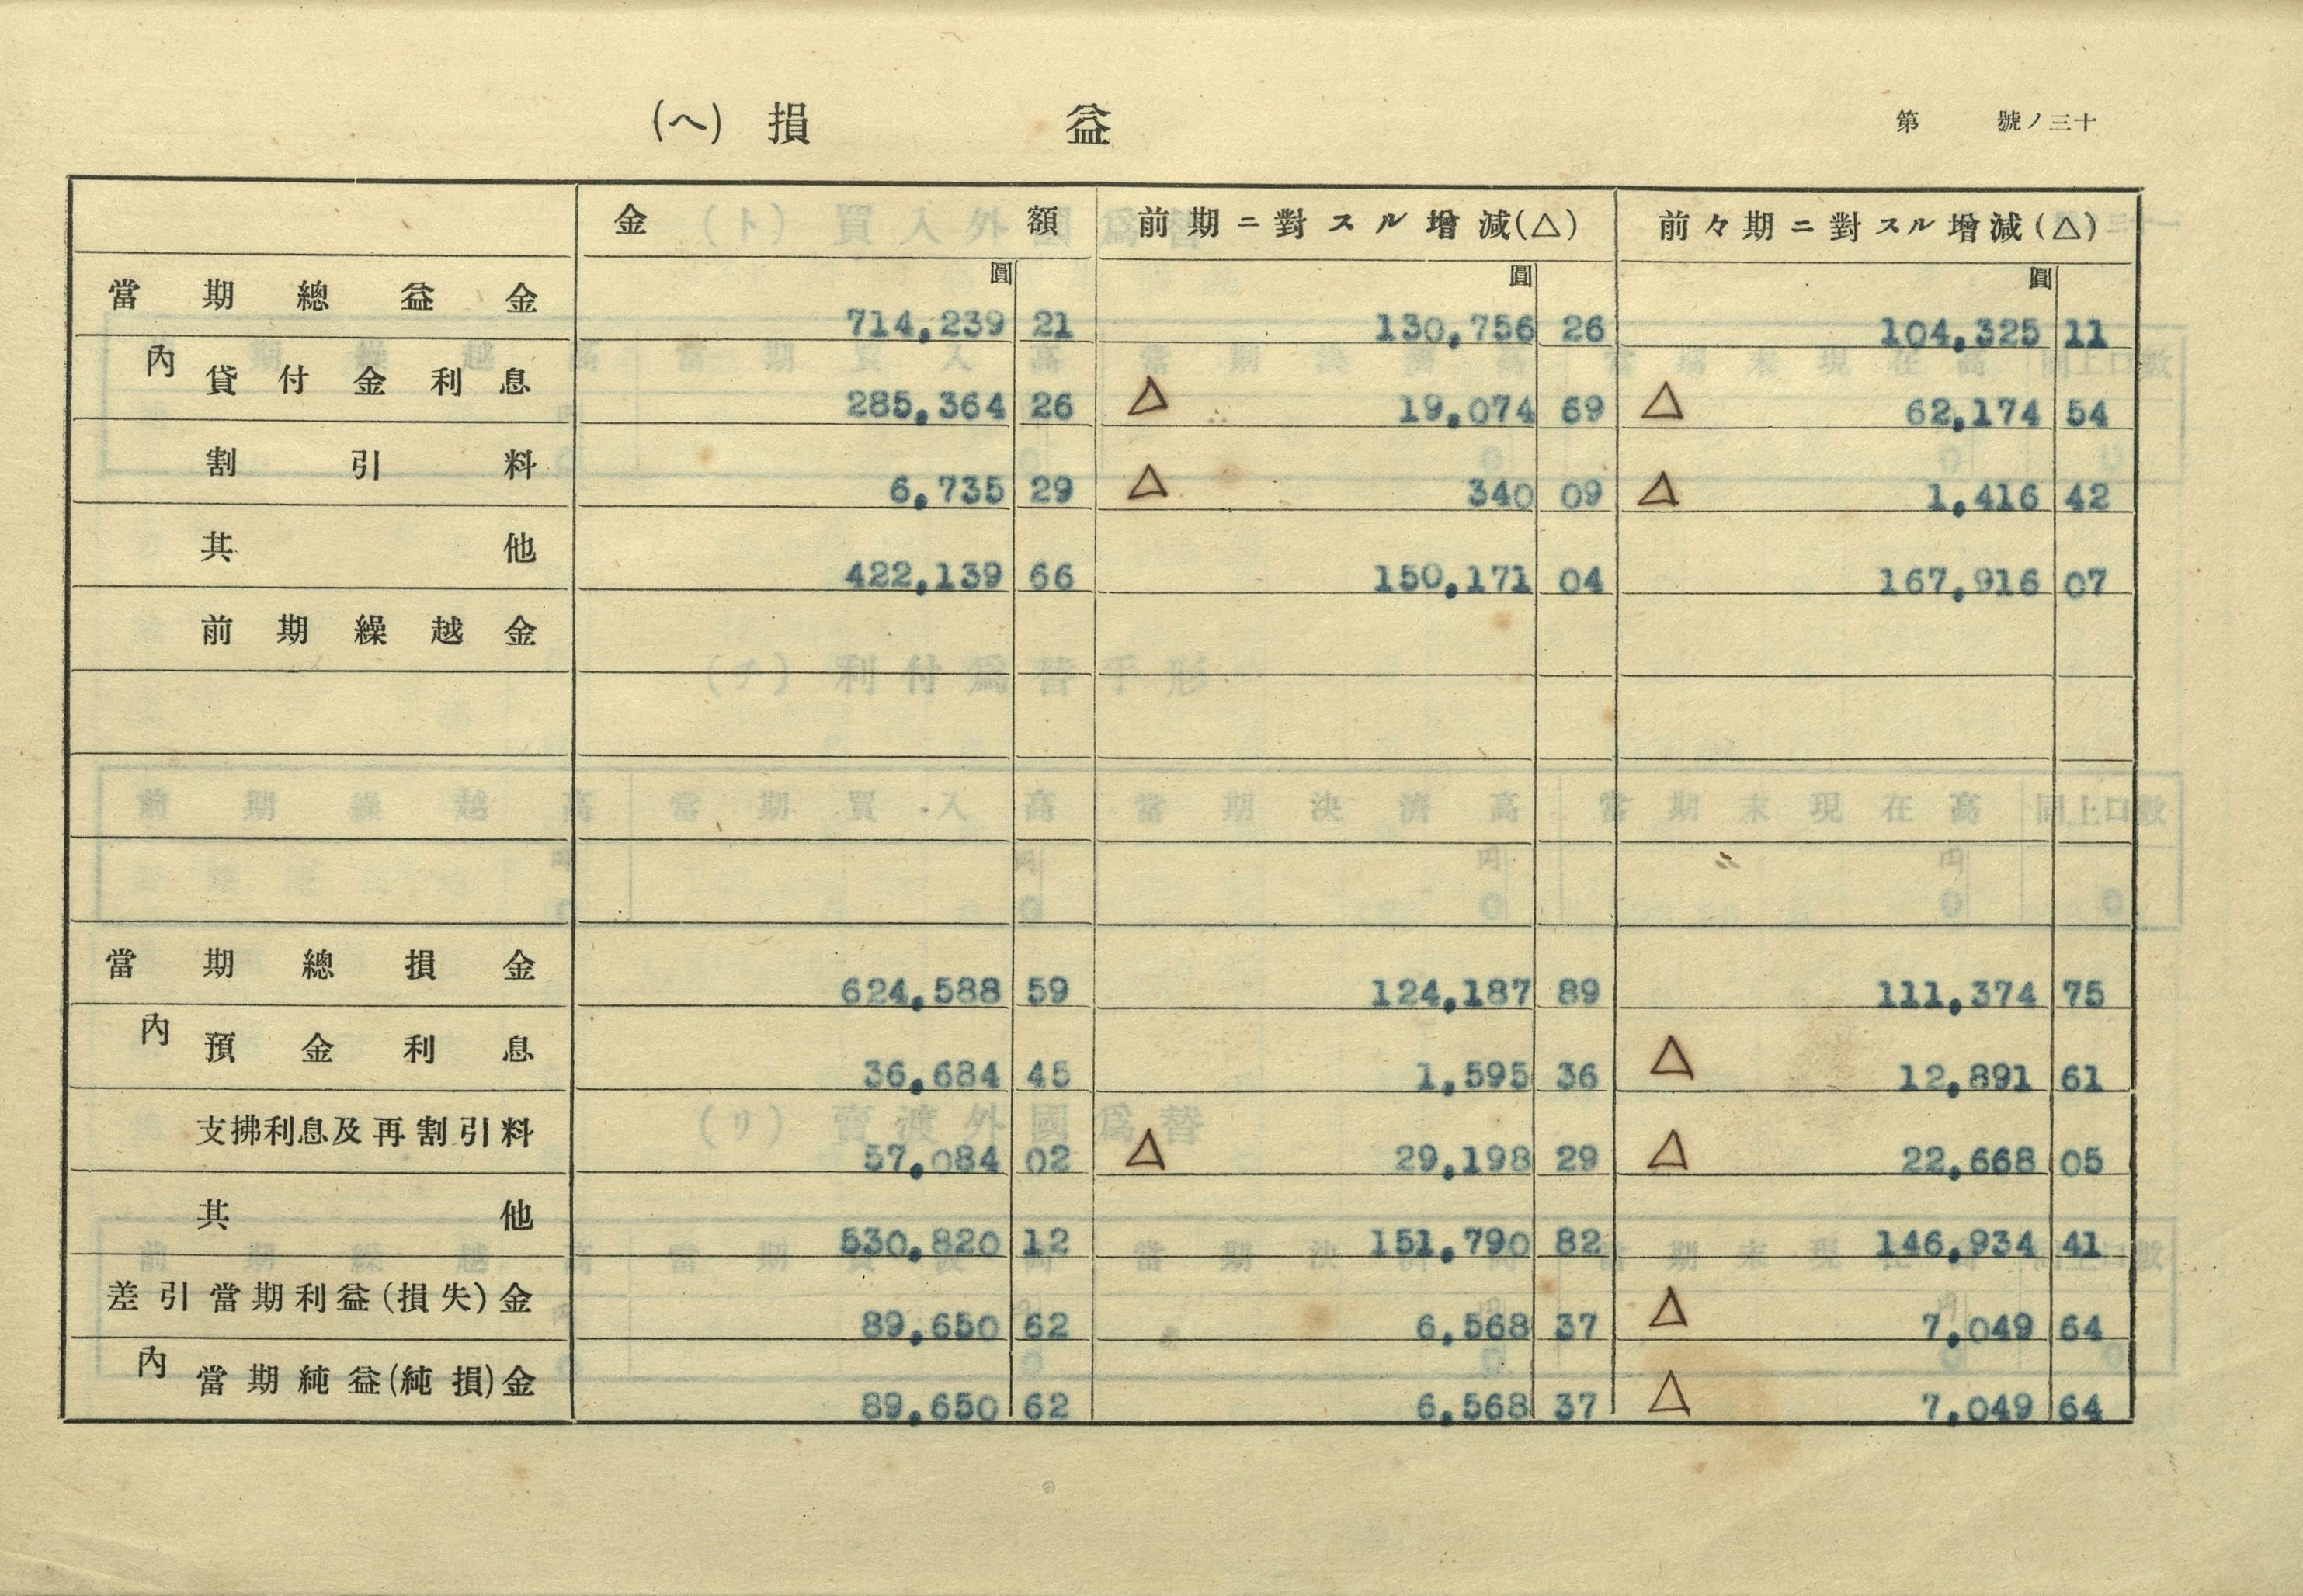 (ヘ) 損 益
第 號ノ三十
金 額 前期ニ對スル增減(△) 前々期ニ對スル增減(△)
圓 圓 圓
當期總益金 714,239 21 130,756 26 104,325 11
內 貸付金利息 285,364 26 △ 19,074 69 △ 62,174 54
割引料 6,735 29 △ 340 09 △ 1,416 42
其他 422,139 66 150,171 04 167,916 07
前期繰越金
當期總損金 624,588 59 124,187 89 111,374 75
內 預金利息 36,684 45 1,595 36 △ 12,891 61
支拂利息及再割引料 57,084 02 △ 29,198 29 △ 22,668 05
其他 530,820 12 151,790 82 146,934 41
差引當期利益(損失)金 89,650 62 6,568 37 △ 7,049 64
內 當期純益(純損)金 89,650 62 6,568 37 △ 7,049 64